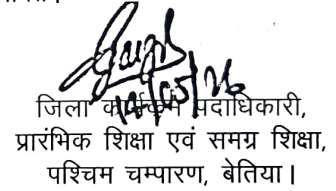 14/05/26
जिला कार्यक्रम पदाधिकारी,
प्रारंभिक शिक्षा एवं समग्र शिक्षा,
पश्चिम चम्पारण, बेतिया।